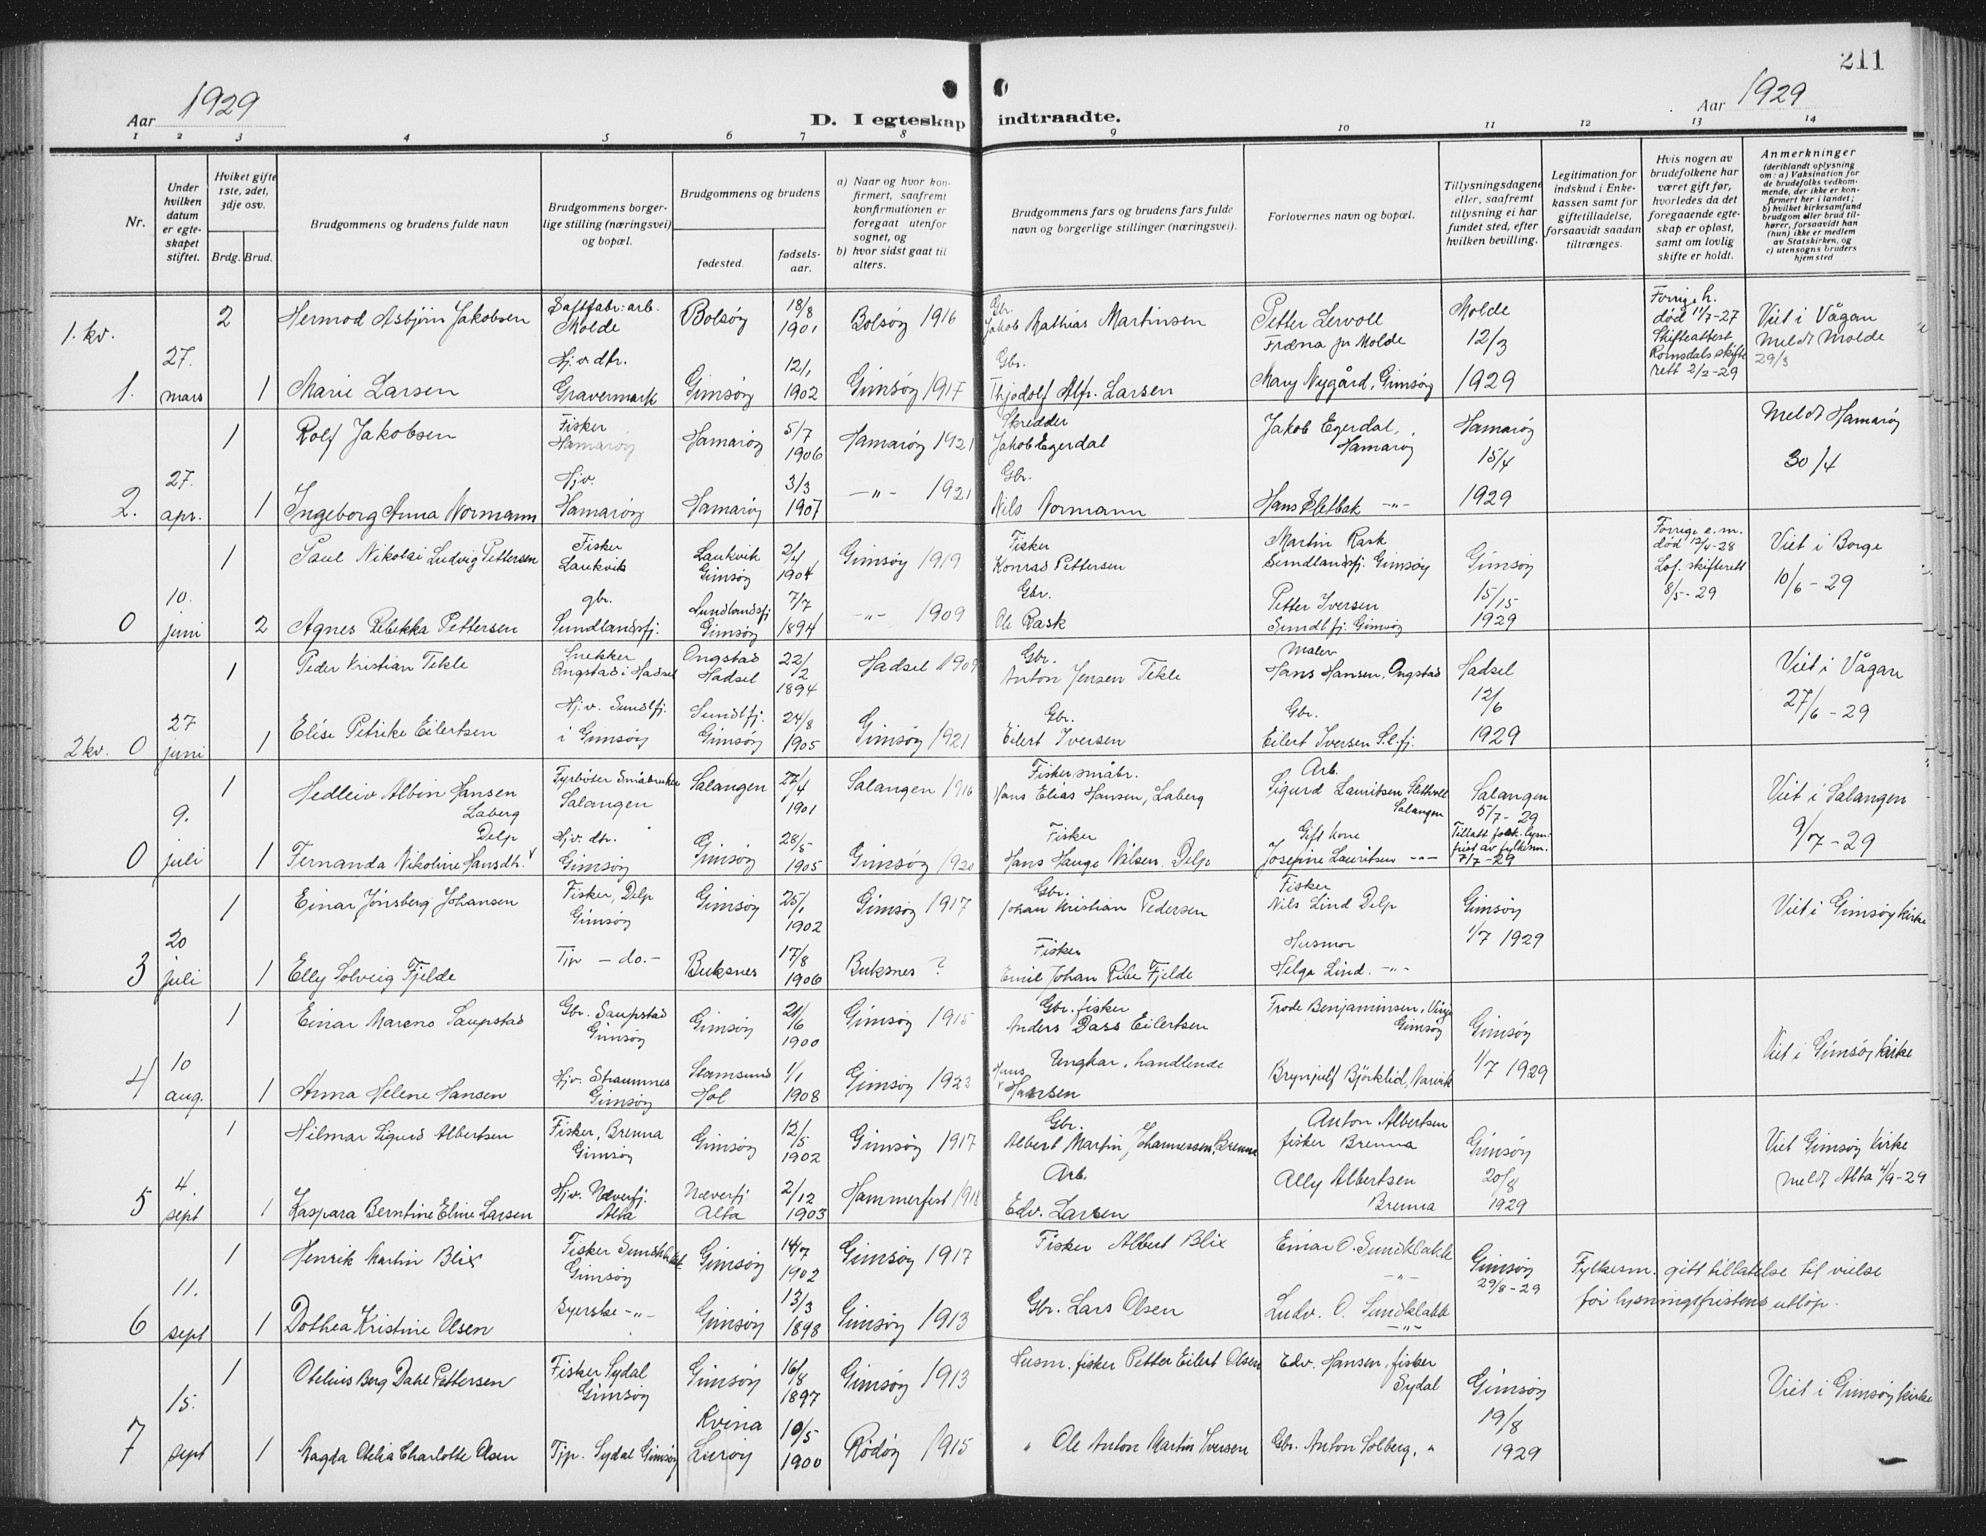 211
Aar 1929
D. I egteskap indtraadte.
Aar 1929
1 2 3 4 5 6 7 8 9 10 11 12 13 14
Nr.
Under hvilken datum er egteskapet stiftet.
Hviket gifte 1ste, 2det, 3dje osv.
Brdg. Brud.
Brudgommens og brudens fulde navn
Brudgommens borgerlige stilling (næringsvei) og bopæl.
Brudgommens og brudens
fødested.
fødselsaar.
a) Naar og hvor konfirmert, saafremt konfirmationen er foregaat utenfor sognet, og
b) hvor sidst gaat til alters.
Brudgommens fars og brudens fars fulde navn og borgerlige stillinger (næringsvei).
Forlovernes navn og bopæl.
Tillysningsdagene eller, saafremt tillysning ei har fundet sted, efter hvilken bevilling.
Legitimation for indskud i Enkekassen samt for giftetilladelse, forsaavidt saadan tiltrænges.
Hvis nogen av brudefolkene har været gift før, hvorledes da det foregaaende egteskap er opløst, samt om lovlig skifte er holdt.
Anmerkninger (deriblandt oplysning om: a) Vaksination for de brudefolks vedkommende, der ikke er konfirmert her i landet; b) hvilket kirkesamfund brudgom eller brud tilhører, forsaavidt han (hun) ikke er medlem av Statskirken, og c) utensogns bruders hjemsted
1. kv.
2 Hermod Asbjörn Jakobsen Saftfabr: arb. Molde Bolsöy 18/8 1901 Bolsöy 1916 Gbr. Jakob Mathias Martinsen Petter Lervoll Fræna pr Molde Molde 12/3 Forrige h. död 11/7-27 Skifteattest Romsdals skifterett 2/2-29 Viet i Vågan Meldt Molde 29/3
1. 27. mars 1 Marie Larsen Hj.v. dtr. Gravermark Gimsöy 12/1 1902 Gimsöy 1917 Gbr. Thjodolf Alfr. Larsen Mary Nygård, Gimsöy 1929
1 Rolf Jakobsen Fisker Hamaröy Hamaröy 5/7 1906 Hamaröy 1921 Skredder Jakob Egerdal Jakob Egerdal, Hamaröy Hamaröy 15/4 Meldt Hamaröy 30/4
2. 27. apr. 1 Ingeborg Anna Normann Hj.v. Hamaröy Hamaröy 3/3 1907 —"— 1921 Gbr. Nils Normann Hans Sletbak —"— 1929
1 Paul Nikolai Ludvig Pettersen Fisker Laukvik Laukvik Gimsöy 2/4 1904 Gimsöy 1919 Fisker Konrad Pettersen Martin Rask Sundlandsfj. Gimsöy Gimsöy Forrige e.m. död 12/4-28 Lof. skifterett 8/5-29 Viet i Borge 10/6-29
0 10. juni 2 Agnes Rebekka Pettersen gbr. Sundlandsfj. Sundlandsfj. Gimsöy 7/7 1894 —"— 1909 Gbr. Ole Rask Petter Iversen Sundlfj. Gimsöy 15/15 1929
1 Peder Kristian Tekle Snekker Ongstad i Hadsel Ongstad Hadsel 22/2 1894 Hadsel 1909 Gbr. Anton Jensen Tekle Maler Hans Hansen, Ongstad Hadsel 12/6 Viet i Vågan 27/6-29
2 kv. 0 27 juni 1 Elise Petrike Eilertsen Hj.v. Sundlfj. i Gimsöy Sundlfj. Gimsöy 24/8 1905 Gimsöy 1921 Gbr. Eilert Iversen Gbr. Eilert Iversen S.l.fj. 1929
1 Hedleiv Albin Hansen Laberg Fyrböter Småbruker Salangen Salangen 27/4 1901 Salangen 1916 Fisker, småbr. Hans Elias Hansen, Laberg Arb. Sigurd Lauritsen Slettvoll Salangen Salangen 5/7-29 Viet i Salangen 9/7-29
0 9. juli 1 Fernanda Nikoline Hansdtr. Delp Hj.v. dtr. Gimsöy Gimsöy 28/5 1905 Gimsöy 1920 Fisker Hans Hauge Nilsen Delp Gift kone Josefine Lauritsen —"— Tillatt fork. lysn. frist av fylkesm. 7/7-29
1 Einar Jönsberg Johansen Fisker, Delp Gimsöy Gimsöy 25/1 1902 Gimsöy 1917 Gbr. Johan Kristian Pedersen Fisker Nils Lind Delp Gimsöy 1/7 1929 Viet i Gimsöy kirke
3 20 juli 1 Elly Solveig Fjelde Tjp — do. — Buksnes 17/8 1906 Buksnes ? Fisker Emil Johan Ribe Fjelde Husmor Helga Lind. —"—
1 Einar Mareno Saupstad Gbr. Saupstad Gimsöy Gimsöy 21/6 1900 Gimsöy 1915 Gbr. fisker Anders Dass Eilertsen Frode Benjaminsen, Vinje Gimsöy Gimsöy Viet i Gimsöy kirke
4 10 aug. 1 Anna Helene Hansen Hj.v. Straumnes Gimsöy Stamsund Hol 1/1 1908 Gimsöy 1923 Ungkar, handlende Hans Hansen Brynjulf Björklid, Narvik 1/7 1929
1 Hilmar Sigurd Albertsen Fisker, Brenna Gimsöy Gimsöy 12/5 1902 Gimsöy 1917 Gbr. Albert Martin Johannessen, Brenna Anton Albertsen fisker Brenna Gimsöy Viet Gimsöy kirke Meldt Alta 4/9-29
5 4. sept 1 Kaspara Berntine Eline Larsen Hj.v. Næverfj. Alta Næverfj Alta 2/12 1903 Hammerfest 1918 Arb. Edv. Larsen Ally Albertsen Brenna 20/8 1929
1 Henrik Martin Blix Fisker Sundklakk Gimsöy Gimsöy 14/7 1902 Gimsöy 1917 Fisker Albert Blix Einar O. Sundklakk —"— Gimsöy 29/8-29 Fylkesm. gitt tillatelse til vielse för lysningsfristens utlöp.
6 11. sept 1 Dothea Kristine Olsen Syerske —"— Gimsöy 13/3 1898 Gimsöy 1913 Gbr. Lars Olsen Ludv. O. Sundklakk —"—
1 Otelius Berg Dahl Pettersen Fisker Sydal Gimsöy Gimsöy 16/8 1897 Gimsöy 1913 Husm. fisker Petter Eilert Olsen Edv. Hansen, fisker Sydal Gimsöy Viet i Gimsöy kirke
7 15. sept 1 Magda Otelia Charlotte Olsen Tjp. Sydal Gimsöy Kvina Luröy 10/5 1900 Rödöy 1915 " Ole Anton Martin Iversen Gbr. Anton Solberg, " 19/8 1929